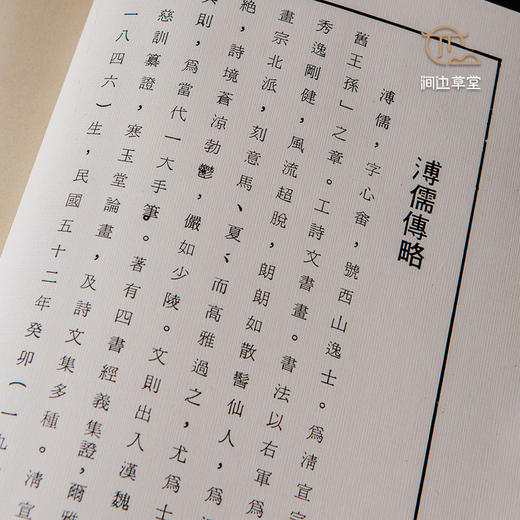 涧边草堂
溥儒傳略
溥儒，字心畬，號西山逸士。爲淸宣宗
舊王孫」之章。工詩文書畫。書法以右軍爲
秀逸剛健，風流超脫，朗朗如散髻仙人，爲
畫宗北派，刻意馬、夏、而高雅過之，尤爲士
絕，詩境蒼涼勃鬱，儼如少陵。文則出入漢魏
則，爲當代一大手筆。著有四書經義集證，爾雅
慈訓纂證，寒玉堂論畫，及詩文集多種。淸宣
一八四六）生，民國五十二年癸卯（一九